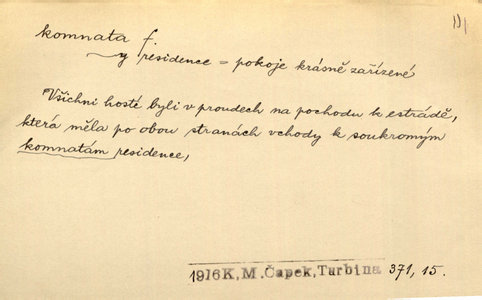 komnata f.
~y residence = pokoje krásně zařízené
Všichni hosté byli v proudech na pochodu k estrádě,
která měla po obou stranách vchody k soukromým
komnatám residence,
1916 K, M. Čapek, Turbina 371, 15.